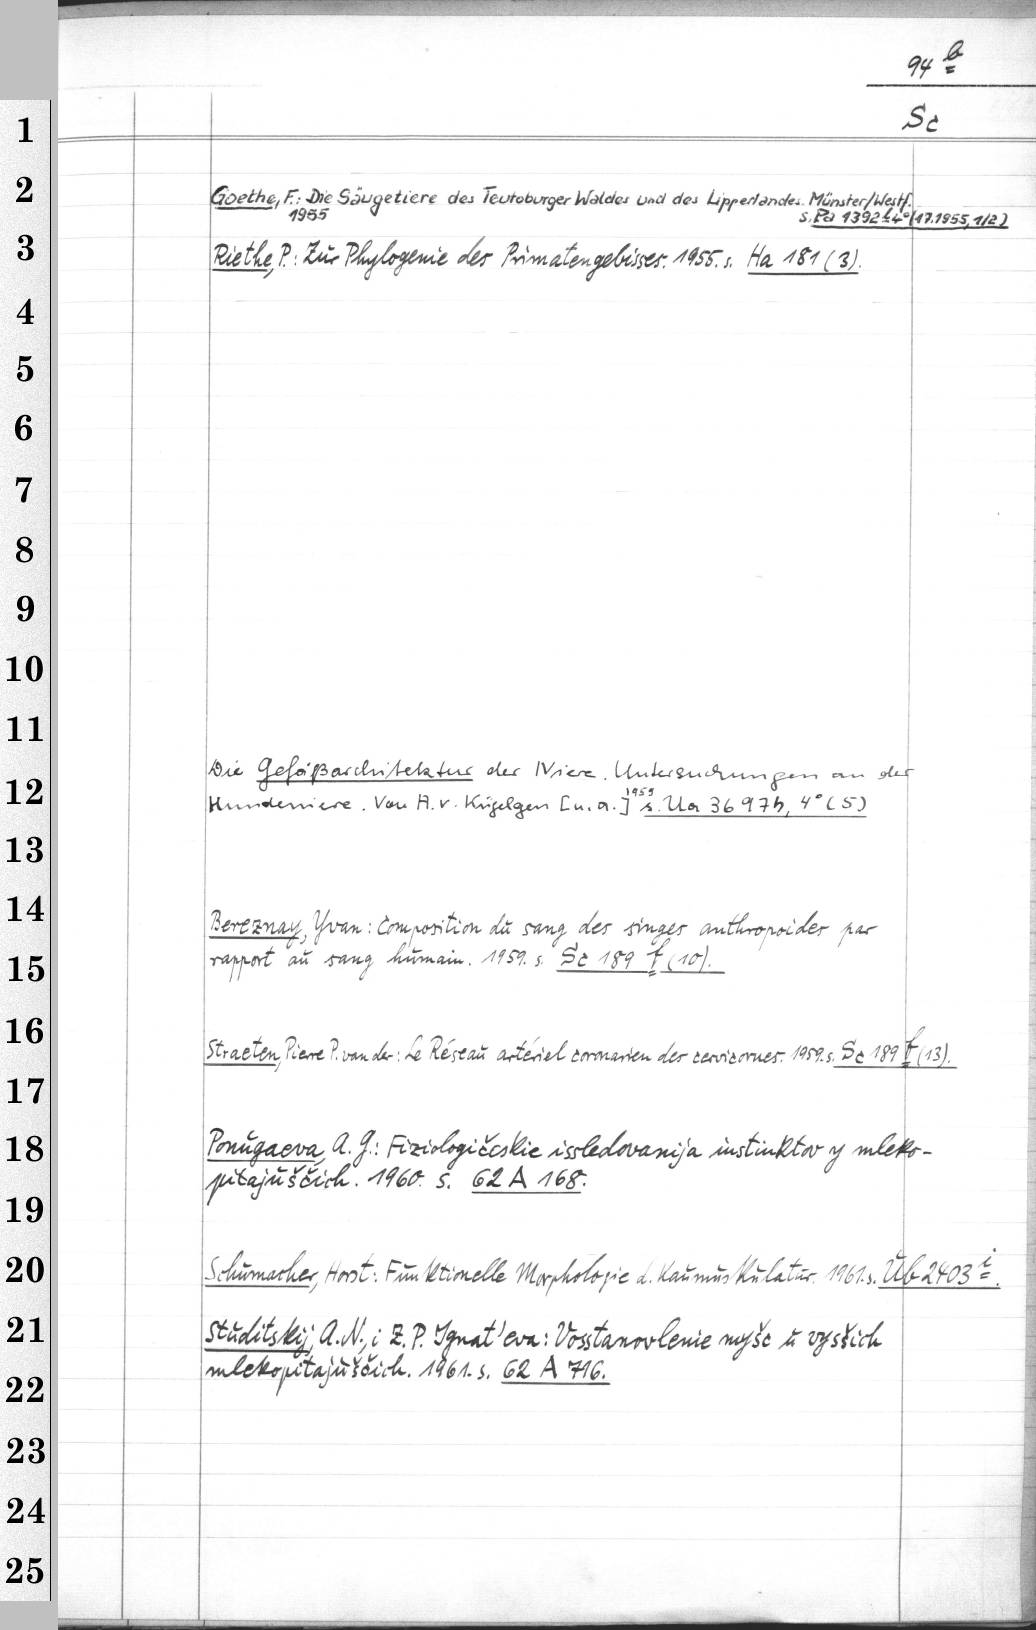 94 b
Sc
1
2
3
4
5
6
7
8
9
10
11
12
13
14
15
16
17
18
19
20
21
22
23
24
25
Goethe, F.: Die Säugetiere des Teutoburger Waldes und des Lipperlandes. Münster/Westf.
1955 s. Pa 1392 4° (17.1955, 1/2)
Riethe, P.: Zur Phylogenie des Primatengebisses. 1955. s. Ha 181 (3).
Die Gefäßarchitektur der Niere. Untersuchungen an der
Hundeniere. Von A. v. Kügelgen [u. a.] 1959 s. Ua 3697h, 4° (5)
Bereznay, Yvan: Composition du sang des singes anthropoides par
rapport au sang humain. 1959. s. Sc 189 f (10).
Straeten, Pierre P. van der: Le Réseau artériel coronarien des cervicornes. 1959. s. Sc 189 f (13).
Ponugaeva, A. G.: Fiziologičeskie issledovanija instinktov y mleko-
pitajuščich. 1960. s. 62 A 168.
Schumacher, Horst: Funktionelle Morphologie d. Kaumuskulatur. 1961. s. Ub 2403 i.
Studitskij, A. N., i Z. P. Ignat'eva: Vosstanovlenie myšc u vysšich
mlekopitajuščich. 1961. s. 62 A 716.